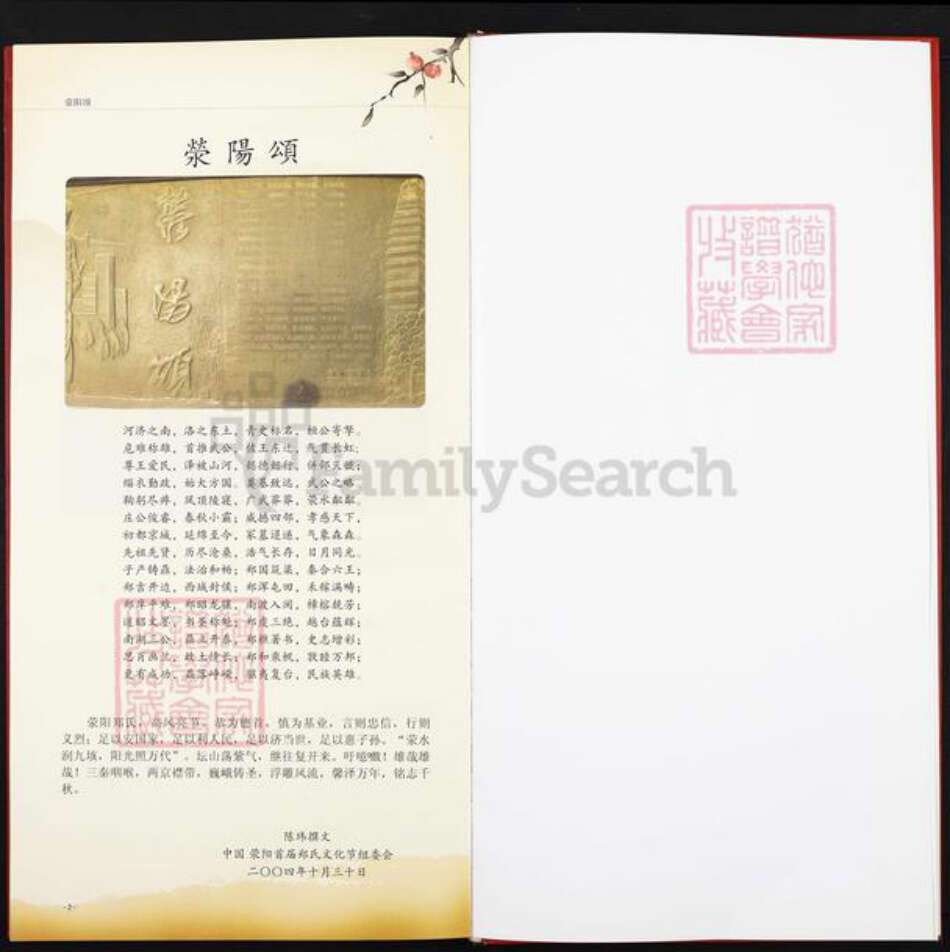 荥阳颂
滎陽頌
滎
陽
頌
河济之南，洛之东土，青史标名，桓公寄孥。
危难称雄，首推武公，佐王东迁，气贯长虹；
尊王爱民，泽被山河，懿德懿行，
缁衣勤政，始大方国。武公之略，
鞠躬尽瘁，凤顶陵寝，广武莽莽，荥水
庄公俊睿，春秋小霸；威撼四邻，孝感天下，
初都京城，延绵至今，冢墓逶迤，气象森森。
先祖先贤，历尽沧桑，浩气长存，日月同光。
子产铸鼎，法治和畅；郑国筑渠，秦合六王；
郑吉开边，西域封侯；郑浑屯田，禾稼满畴；
平难，郑昭龙骧，南渡入闽，樟榕统芳；
道昭文墨，书圣称魁；郑虔三绝，越台蕴辉；
南湖三公，莆立开泰，郑樵著书，史志增彩；
思肖画兰，故土情长；郑和乘帆，敦睦万邦；
更有成功，磊落峥嵘，驱夷复台，民族英雄。
荥阳郑氏，高风亮节，恭为德首，慎为基业，言则忠信，行则
义烈；足以安国家，足以利人民，足以济当世，足以惠子孙。“荥水
润九垓，阳光照万代”。坛山荡紫气，继往复开来。吁噫嚱！雄哉雄
哉！三秦咽喉，两京襟带，巍峨铸圣，浮雕风流，馨泽万年，铭志千
秋。
陈玮撰文
中国 荥阳首届郑氏文化节组委会
二〇〇四年十月三十日
-2-
FamilySearch
譜學會
收藏